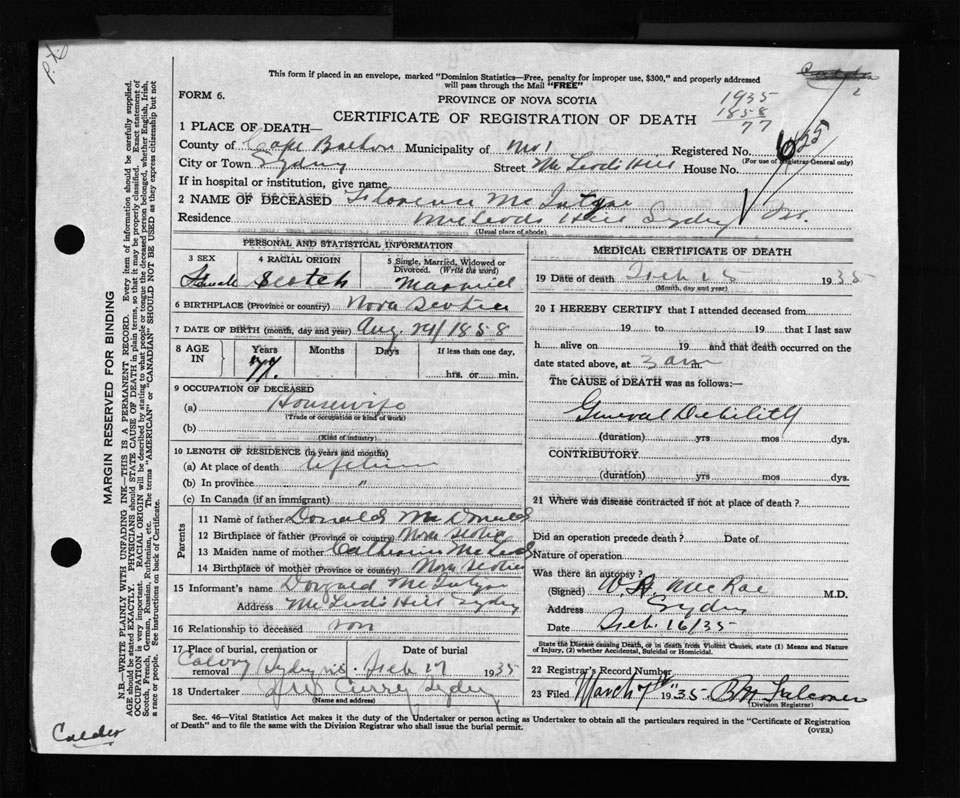 This form if placed in an envelope, marked "Dominion Statistics—Free, penalty for improper use, $300," and properly addressed
will pass through the Mail "FREE"
FORM 6.
PROVINCE OF NOVA SCOTIA
CERTIFICATE OF REGISTRATION OF DEATH
1935
1858
77
1 PLACE OF DEATH—
County of Cape Breton Municipality of No 1 Registered No.
(For use of Registrar General only)
City or Town Sydney Street McLeods Hill House No.
If in hospital or institution, give name
2 NAME OF DECEASED Florence McIntyre
Residence McLeods Hill Sydney N.S.
(Usual place of abode)
PERSONAL AND STATISTICAL INFORMATION
3 SEX Female
4 RACIAL ORIGIN Scotch
5 Single, Married, Widowed or Divorced. (Write the word) Married
6 BIRTHPLACE (Province or country) Nova Scotia
7 DATE OF BIRTH (month, day and year) Aug. 24/1858
8 AGE IN Years Months Days If less than one day,
77. hrs. or min.
9 OCCUPATION OF DECEASED
(a) Housewife
(Trade or occupation or kind of work)
(b)
(Kind of industry)
10 LENGTH OF RESIDENCE (in years and months)
(a) At place of death lifetime
(b) In province "
(c) In Canada (if an immigrant)
Parents
11 Name of father Donald McDonald
12 Birthplace of father (Province or country) Nova Scotia
13 Maiden name of mother Catherine McLeod
14 Birthplace of mother (Province or country) Nova Scotia
15 Informant's name Donald McIntyre
Address McLeods Hill Sydney
16 Relationship to deceased son
17 Place of burial, cremation or removal Date of burial
Calvary Sydney N.S. Feb 17 1935
18 Undertaker Curry Sydney
(Name and address)
MEDICAL CERTIFICATE OF DEATH
19 Date of death Feb 15 1935
(Month, day and year)
20 I HEREBY CERTIFY that I attended deceased from
19 to 19 that I last saw
h alive on 19 and that death occurred on the
date stated above, at 3 am m.
The CAUSE of DEATH was as follows:—
General Debility
(duration) yrs mos dys.
CONTRIBUTORY
(duration) yrs mos dys.
21 Where was disease contracted if not at place of death?
Did an operation precede death? Date of
Nature of operation
Was there an autopsy?
(Signed) McRae M.D.
Address Sydney
Date Feb. 16/35
State the Disease causing Death, or in death from Violent Causes, state (1) Means and Nature of Injury, (2) whether Accidental, Suicidal or Homicidal.
22 Registrar's Record Number
23 Filed March 7th 1935 Falconer
(Division Registrar)
Sec. 46—Vital Statistics Act makes it the duty of the Undertaker or person acting as Undertaker to obtain all the particulars required in the "Certificate of Registration
of Death" and to file the same with the Division Registrar who shall issue the burial permit.
(OVER)
MARGIN RESERVED FOR BINDING
N.B.—WRITE PLAINLY WITH UNFADING INK—THIS IS A PERMANENT RECORD. Every item of information should be carefully supplied.
AGE should be stated EXACTLY. PHYSICIANS should STATE CAUSE OF DEATH in plain terms, so that it may be properly classified. Exact statement of
OCCUPATION is very important. RACIAL ORIGIN will be described by stating to what people or tongue the deceased person belonged, whether English, Irish,
Scotch, French, German, Russian, Ruthenian, etc. The terms "AMERICAN" or "CANADIAN" SHOULD NOT BE USED as they express citizenship but not
a race or people. See instructions on back of Certificate.